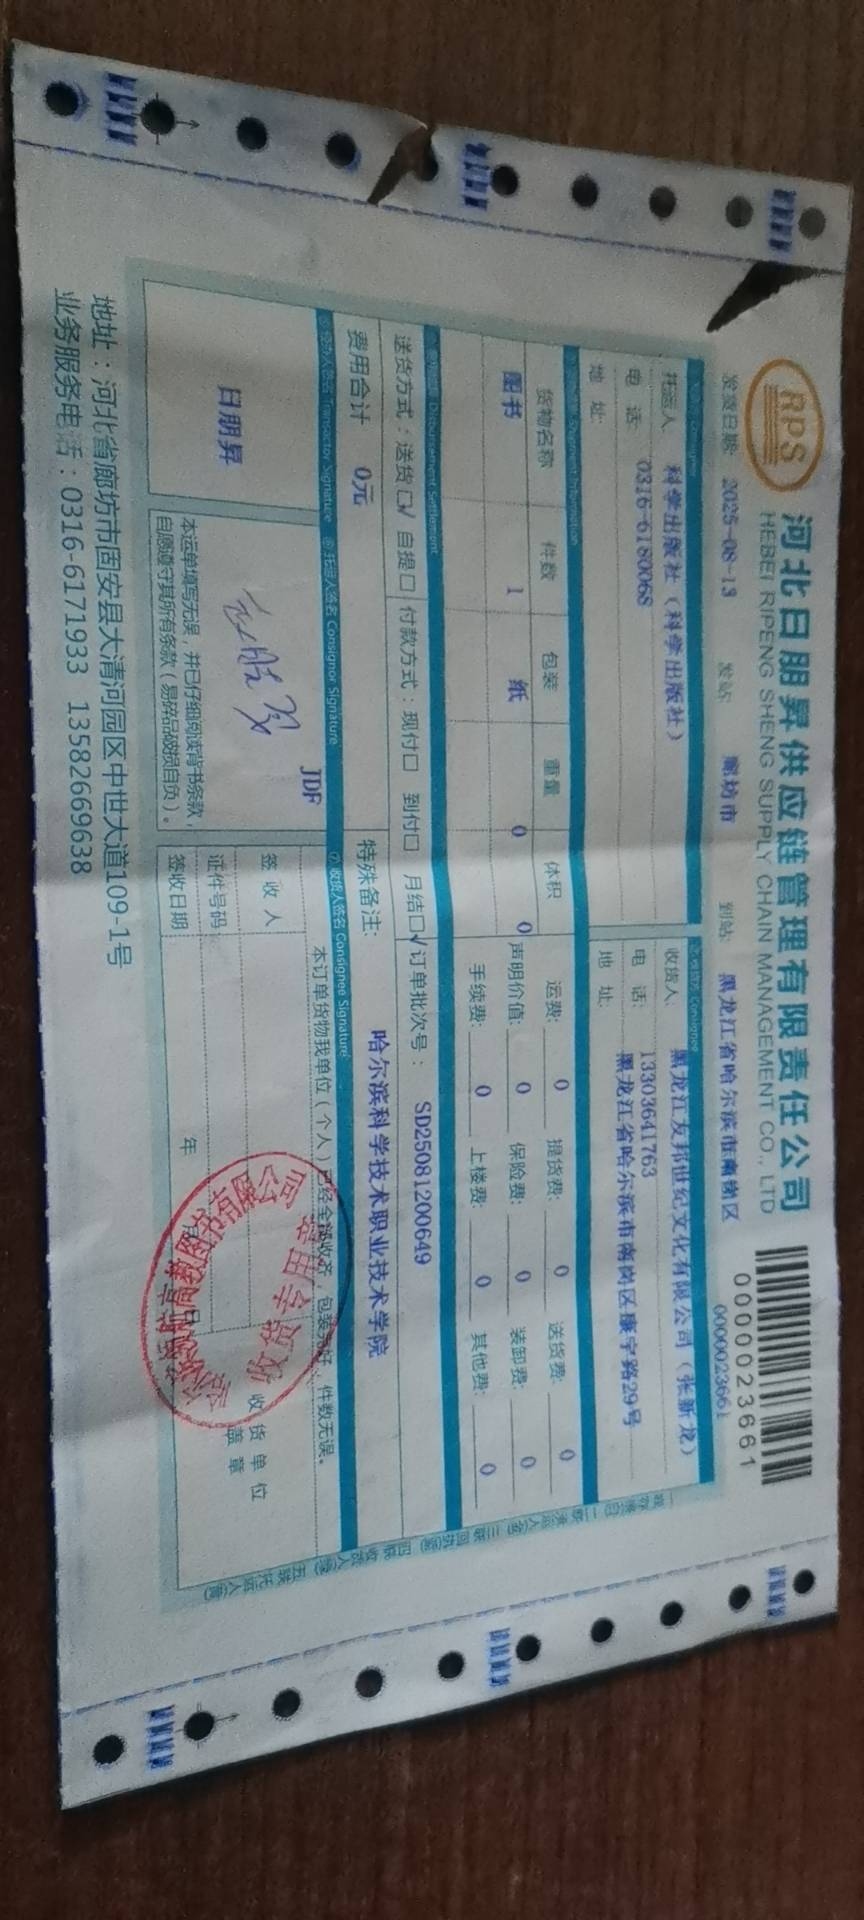 RPS
河北日朋昇供应链管理有限责任公司
HEBEI RIPENG SHENG SUPPLY CHAIN MANAGEMENT CO., LTD
0000023661
发货日期: 2025-08-13 发站: 廊坊市 到站: 黑龙江省哈尔滨市南岗区 0000023661
Consignee
托运人 科学出版社（科学出版社）
电 话: 0316-6180068
地 址:
Consignee
收货人: 黑龙江友邦世纪文化有限公司（张新龙）
电 话: 13303641763
地 址: 黑龙江省哈尔滨市南岗区康宁路29号
Shipment Information
货物名称 件数 包装 重量 体积
图书 1 纸 0 0
运费: 0 提货费: 0 送货费: 0
声明价值: 0 保险费: 0 装卸费: 0
手续费: 0 上楼费: 0 其他费: 0
Disbursement Settlement
送货方式：送货☑ 自提□ 付款方式：现付□ 到付□ 月结☑ 订单批次号： SD25081200649
费用合计 0元 特殊备注: 哈尔滨科学技术职业技术学院
经办人签名 Transactor Signature
托运人签名 Consignor Signature
收货人签名 Consignee Signature
日朋昇
JDF
本运单填写无误，并已仔细阅读背书条款，
自愿遵守其所有条款（易碎品破损自负）。
本订单货物我单位（个人）已经全部收齐，包装完好，件数无误。
签 收 人
证件号码
签收日期 年 月 日
收 货 单 位
盖 章
图书有限公司
收货专用章
地址：河北省廊坊市固安县大清河园区中世大道109-1号
业务服务电话：0316-6171933 13582669638